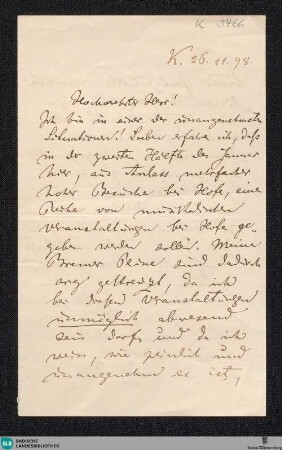 K 3466
K. 26.11.98
Hochverehrter Herr!
Ich bin in einer der unangenehmsten
Situationen! Soeben erfahre ich, daß
in der zweiten Hälfte des Januar
hier, aus Anlass mehrfacher
hoher Besuche bei Hofe, eine
Reihe von musikalischen
Veranstaltungen bei Hofe ge-
geben werden sollen. Meine
Bremer Pläne sind dadurch
arg gekreuzt, da ich
bei diesen Veranstaltungen
unmöglich abwesend
sein darf, und da ich
weiss, wie peinlich und
unangenehm es ist,
BLB BADISCHE
LANDESBIBLIOTHEK
Baden-Württemberg